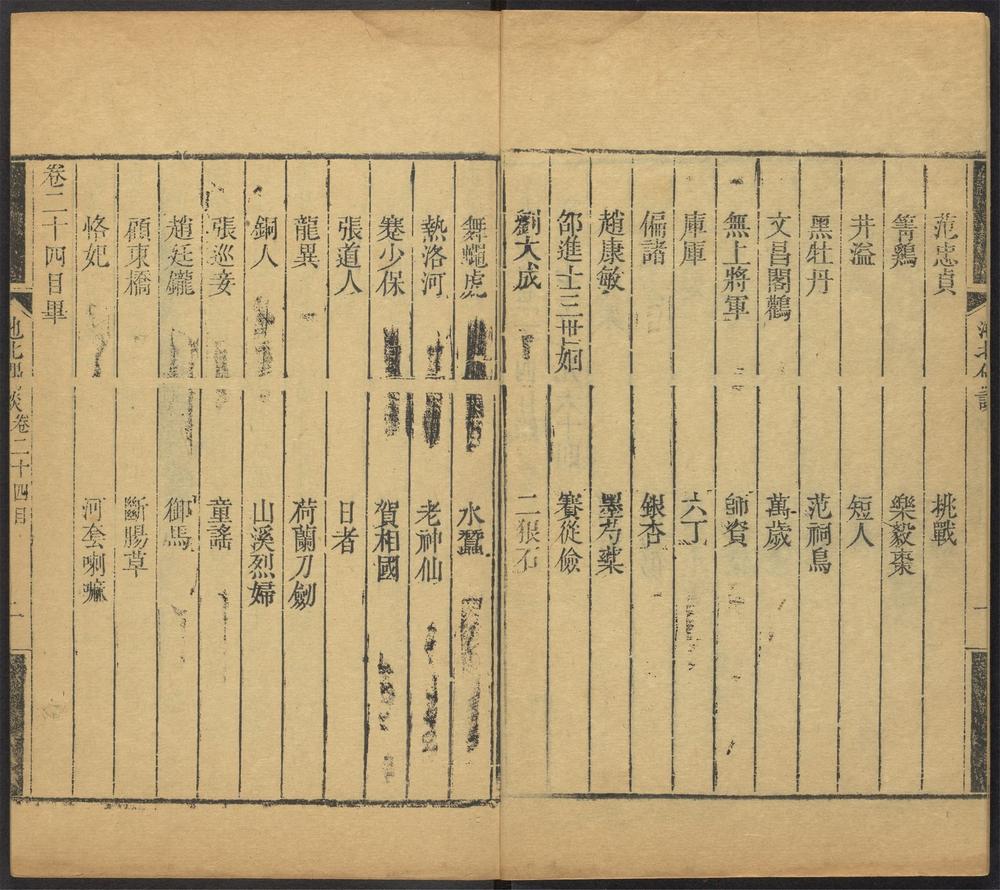 范忠貞 挑戰
箐鷄 樂毅棗
井溢 短人
黑牡丹 范祠鳥
文昌閣鸛 萬歲
無上將軍 師資
庫庫 六丁
偏諸 銀杏
趙康敏 墨芍藥
邵進士三世姻 賽從儉
劉大成 二狠石
舞蠅虎 水蠶
熱洛河 老神仙
蹇少保 賀相國
張道人 日者
龍異 荷蘭刀劒
銅人 山溪烈婦
張巡妾 童謠
趙廷 御馬
顧東橋 斷腸草
恪妃 河套喇嘛
卷二十四目畢
卷二十四目 一